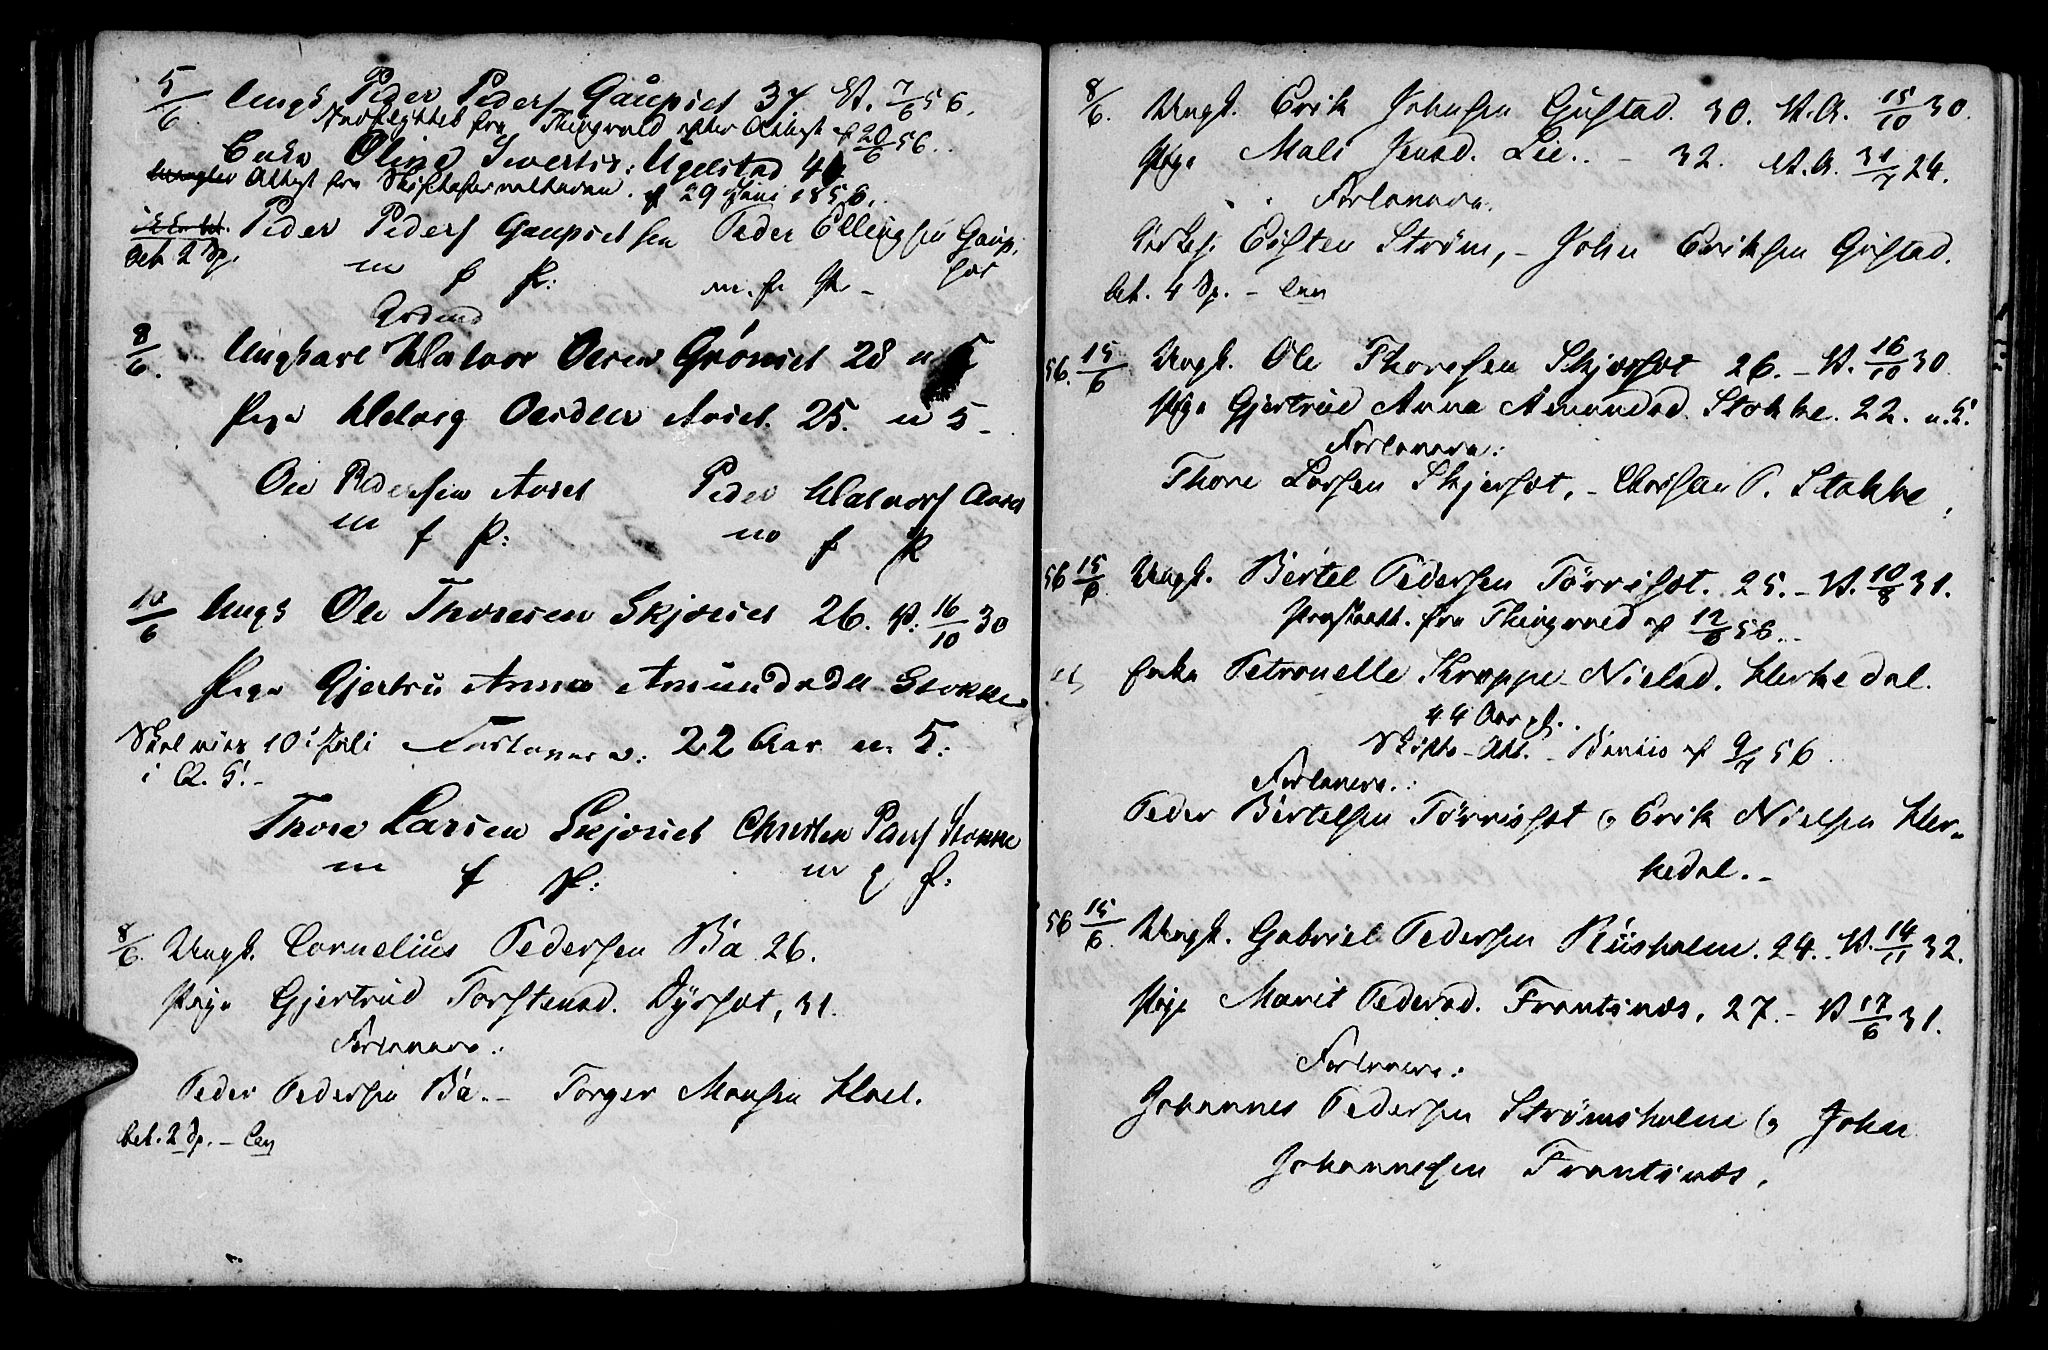 5/6 Ungk Peder Peders Gaupset 37. V. 7/6 56.
fra Thingvold efter Attest af 20/6 56.
Enke Olina Sivertsd: Ugelstad 4
mangler Attest fra Skifteforvalteren. af 29 Juni 1856.
Peder Peders Gaupset Peder Ellingsen Gaup:
bet 2 Sp. set
m f P: m. f. P.
8/6. Ungkarl Halvor Grönset 28 n 5
Pige Oksdtr Aaset. 25. n 5.
Ole Pedersen Aaset Peder Halvors Aaset
m f P: m f P
10/6 Ungk Ole Thoresen Skjørset 26. V. 16/10 30
Pige Gjertru Anna Amundsdtr Stokke
Skal vies 10 Juli Forlovere: 22 Aar n. 5:
Thore Larsen Skjørset Christen Peders Stokke
m f P: m f P:
8/6. Ungk. Cornelius Pedersen Bå 26.
Pige Gjertrud Torstensd. Dyrset, 31.
Forlovere:
Peder Pedersen Bå. – Torger Monsen Hoel.
bet. 2 Sp. –
8/6. Ungk. Erik Johnsen Gustad. 30. V. A. 15/10 30.
Pige Mali Jensd. Lie. – 32. V. A. 31/7 24.
Forlovere.
Eisten Strøm, – John Eriksen Gustad.
bet. 4 Sp. –
56. 15/6 Ungk. Ole Thoresen Skjørset 26. – V. 16/10 30
Pige Gjertrud Anna Amundsd. Stokke. 22. n. 5.
Forlovere:
Thore Larsen Skjerset, – Christen P. Stokke,
56 15/6 Ungk. Bertel Pedersen Törriset. 25. – V. 10/8 31.
Præsteatt. fra Thingvold af 12/6 56.
Enke Petronelle Kroppe Nielsd. Herkedal.
44 Aar gl.
Skifte-Att. Beviis af 9/7 56
Forlovere:
Peder Bertelsen Törriset og Erik Nielsen Her-
kedal. –
56 15/6. Ungk. Gabriel Pedersen Riisholm. 24. V. 14/11 32.
Pige Marit Pedersd. Frantsnæs, 27. – V 17/6 31.
Forlovere:
Johannes Pedersen Strømsholm og John
Johannesen Frantsnæs.